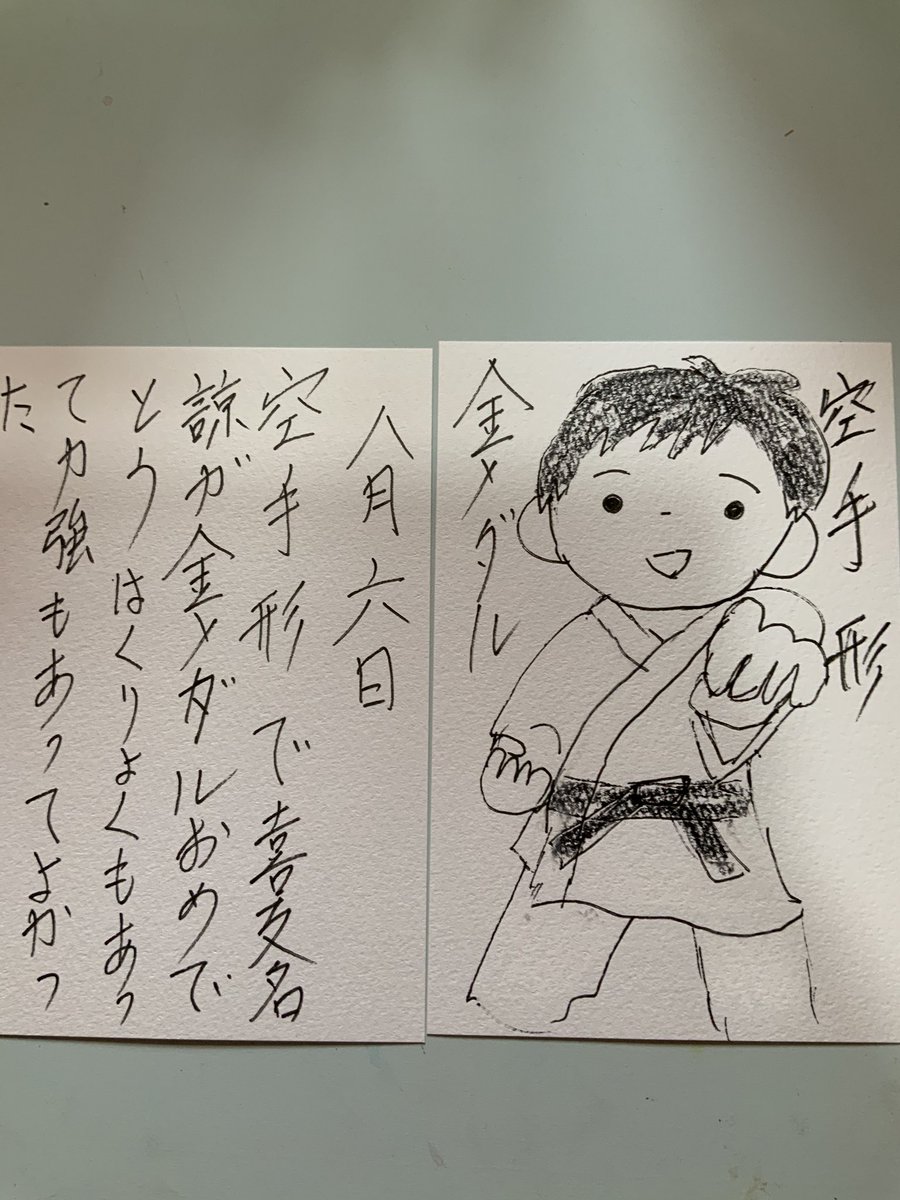 空手形
金メダル
八月六日
空手形で喜友名
諒が金メダルおめで
とうはくりょくもあっ
て力強もあってよかっ
た